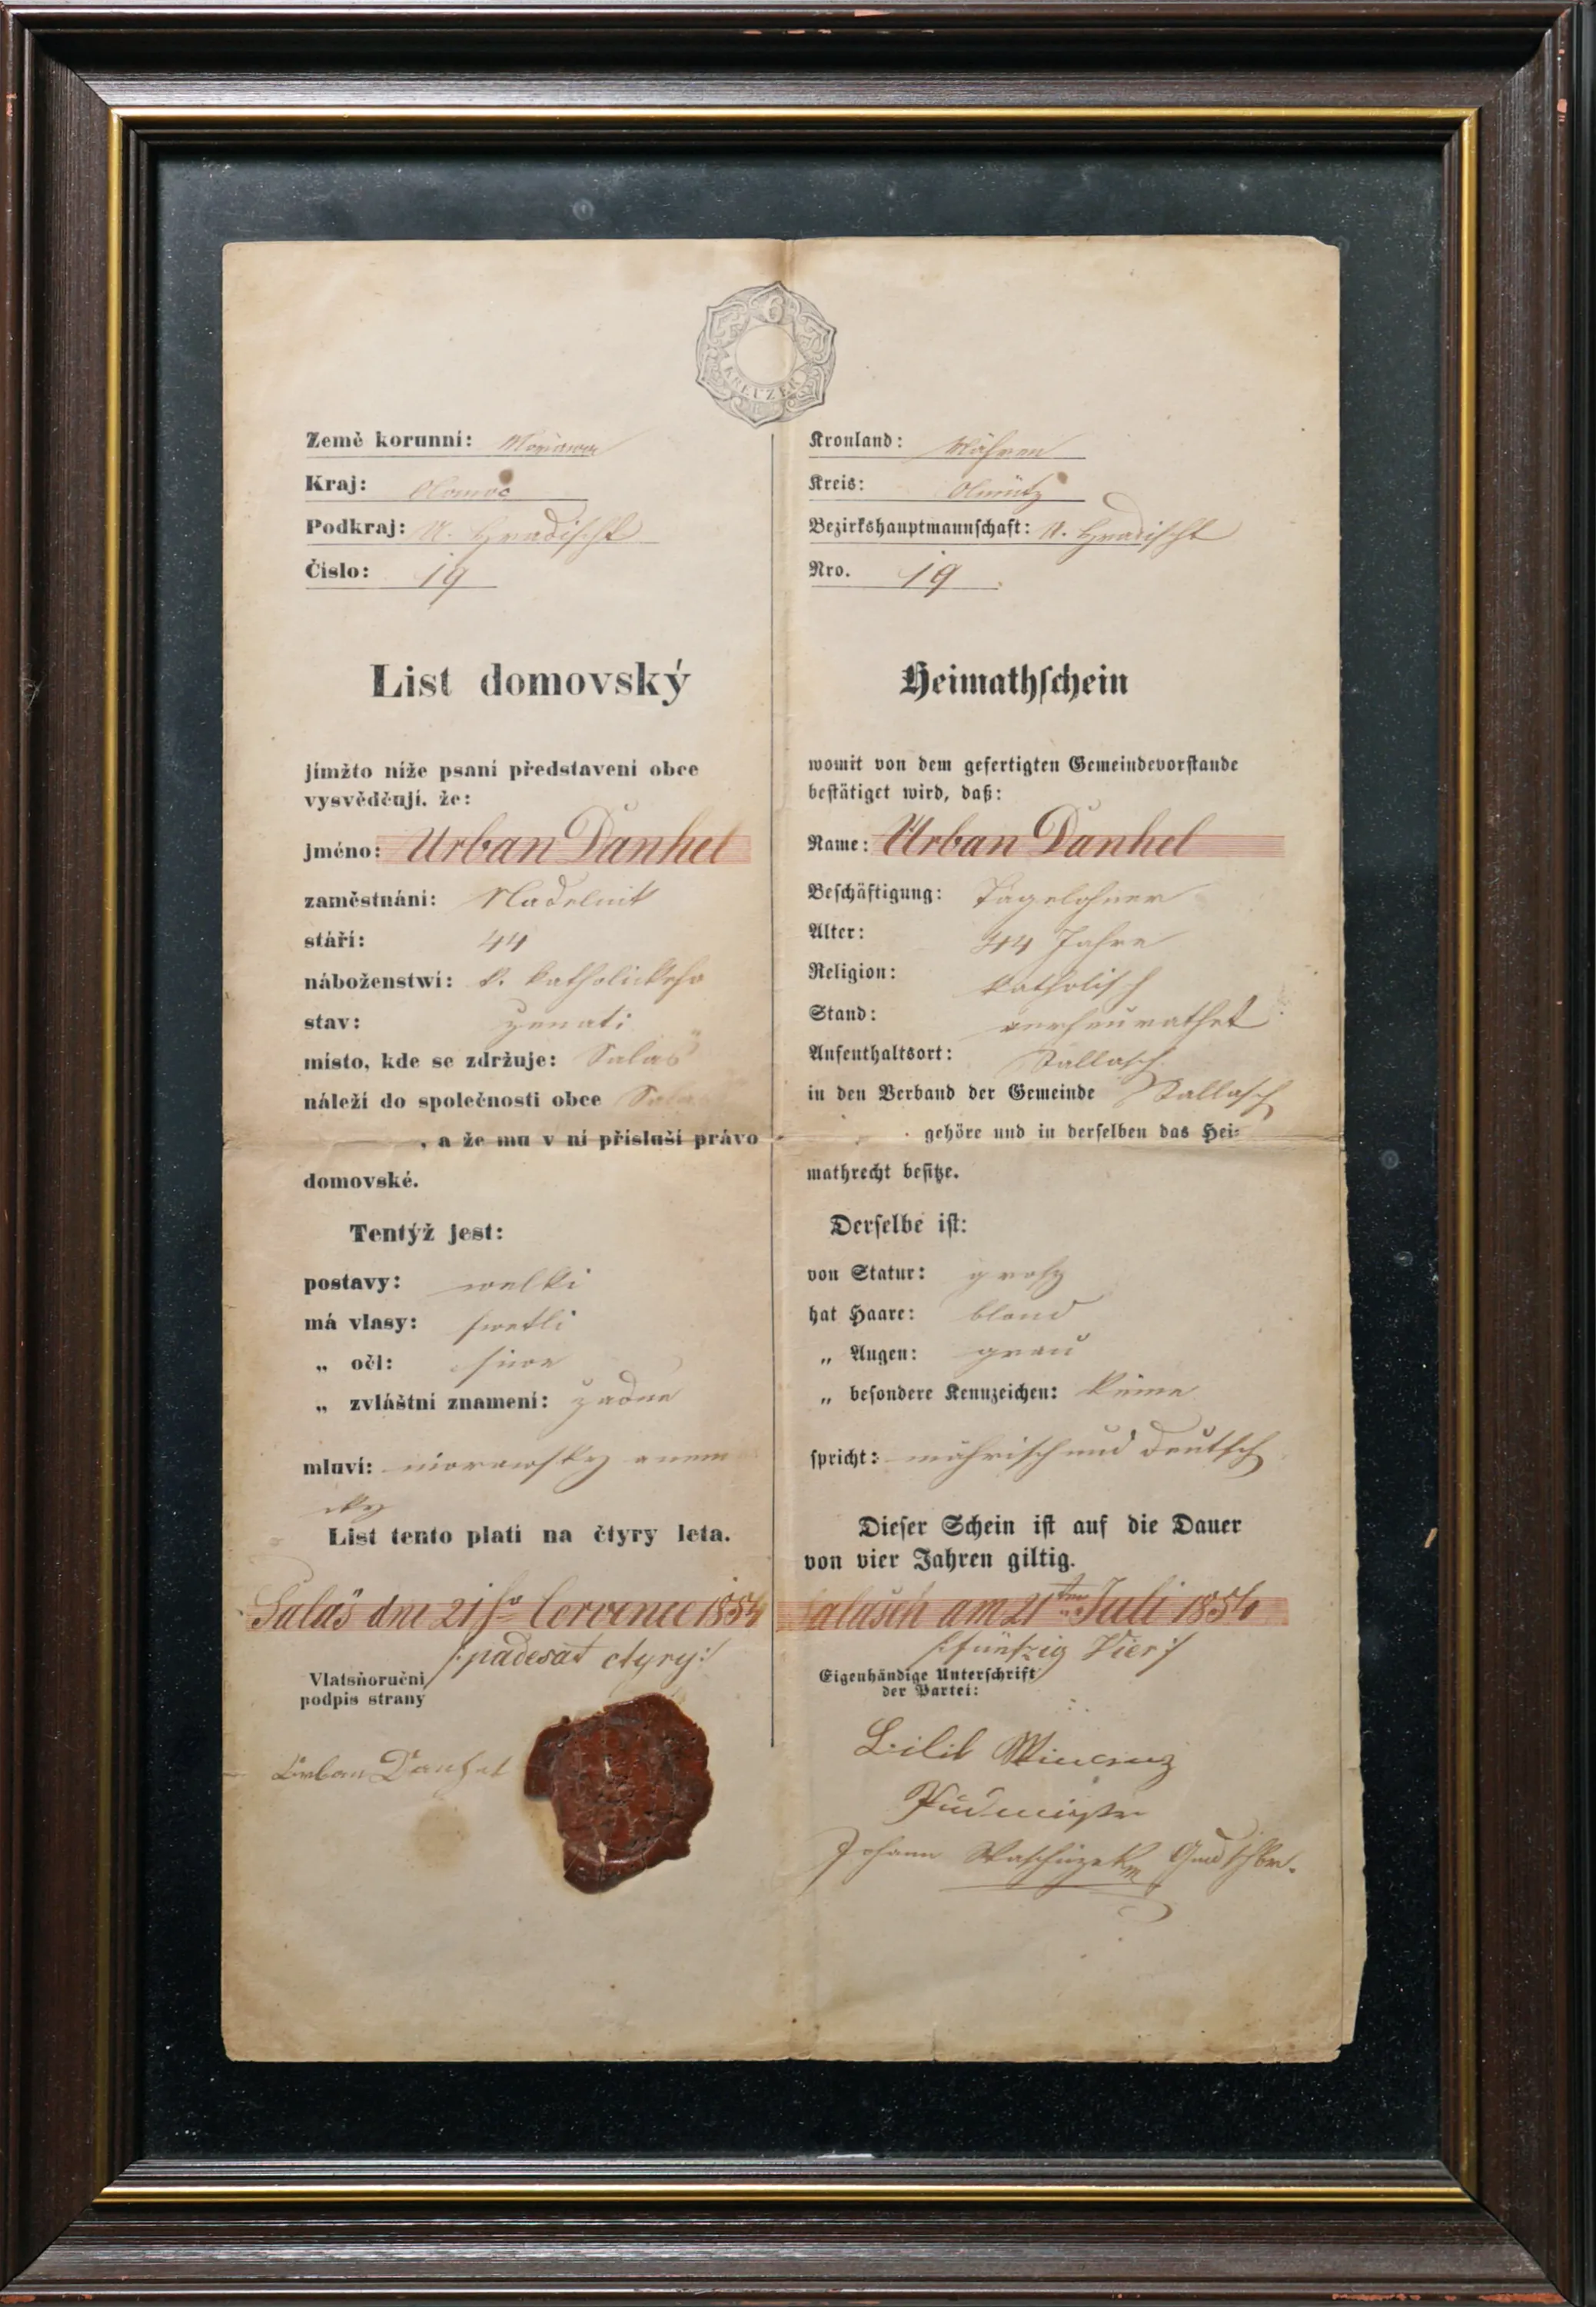 6
KREUZER
Země korunní: Morawa
Kraj: Olomoc
Podkraj: U. Hradischt
Číslo: 19
List domovský
jímžto níže psaní představení obce
vysvědčují, že:
jméno: Urban Daňhel
zaměstnání: Nadelnik
stáří: 44
náboženstwí: k. katholickeho
stav: ženati
místo, kde se zdržuje: Salaš
náleží do společnosti obce Salaš
, a že mu v ní přísluší právo
domovské.
Tentýž jest:
postavy: welki
má vlasy: swetli
„ očl: siwe
„ zvláštní znamení: žadne
mluví: morawsky a nem
cky
List tento platí na čtyry leta.
Salaš dne 21ho Července 1854
/:padesat čtyry:/
Vlatsňoruční
podpis strany
Urban Daňhel
Kronland: Mähren
Kreis: Olmütz
Bezirkshauptmannschaft: U. Hradischt
Nro. 19
Heimathschein
womit von dem gefertigten Gemeindevorstande
bestätiget wird, daß:
Name: Urban Daňhel
Beschäftigung: Tagelohner
Alter: 44 Jahre
Religion: katholisch
Stand: verheurathet
Aufenthaltsort: Sallasch
in den Verband der Gemeinde Sallasch
gehöre und in derselben das Hei-
mathrecht besitze.
Derselbe ist:
von Statur: grosz
hat Haare: blond
„ Augen: grau
„ besondere Kennzeichen: keine
spricht: mährisch und deutsch
Dieser Schein ist auf die Dauer
von vier Jahren giltig.
Salasch am 21ten Juli 1854
/:fünfzig Vier:/
Eigenhändige Unterschrift
der Partei:
Johann